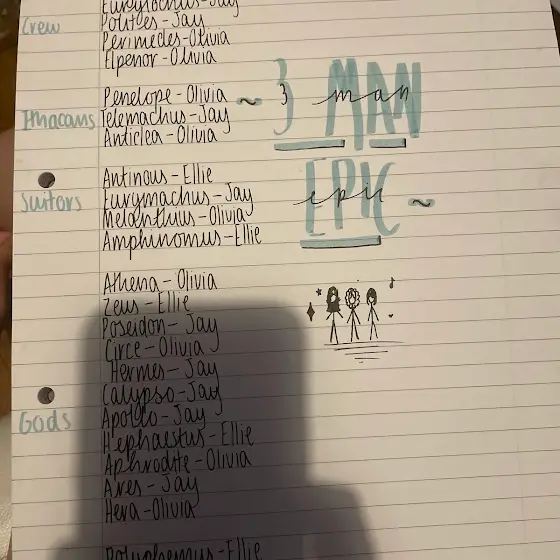 Eurylochus-Jay
Crew
Polites-Jay
Perimedes-Olivia
Elpenor-Olivia
Ithacans
Penelope-Olivia
Telemachus-Jay
Anticlea-Olivia
3 MAN
3 man
EPIC
epic
Suitors
Antinous-Ellie
Eurymachus-Jay
Melanthius-Olivia
Amphinomus-Ellie
Gods
Athena-Olivia
Zeus-Ellie
Poseidon-Jay
Circe-Olivia
Hermes-Jay
Calypso-Jay
Apollo-Jay
Hephaestus-Ellie
Aphrodite-Olivia
Ares-Jay
Hera-Olivia
Polyphemus-Ellie